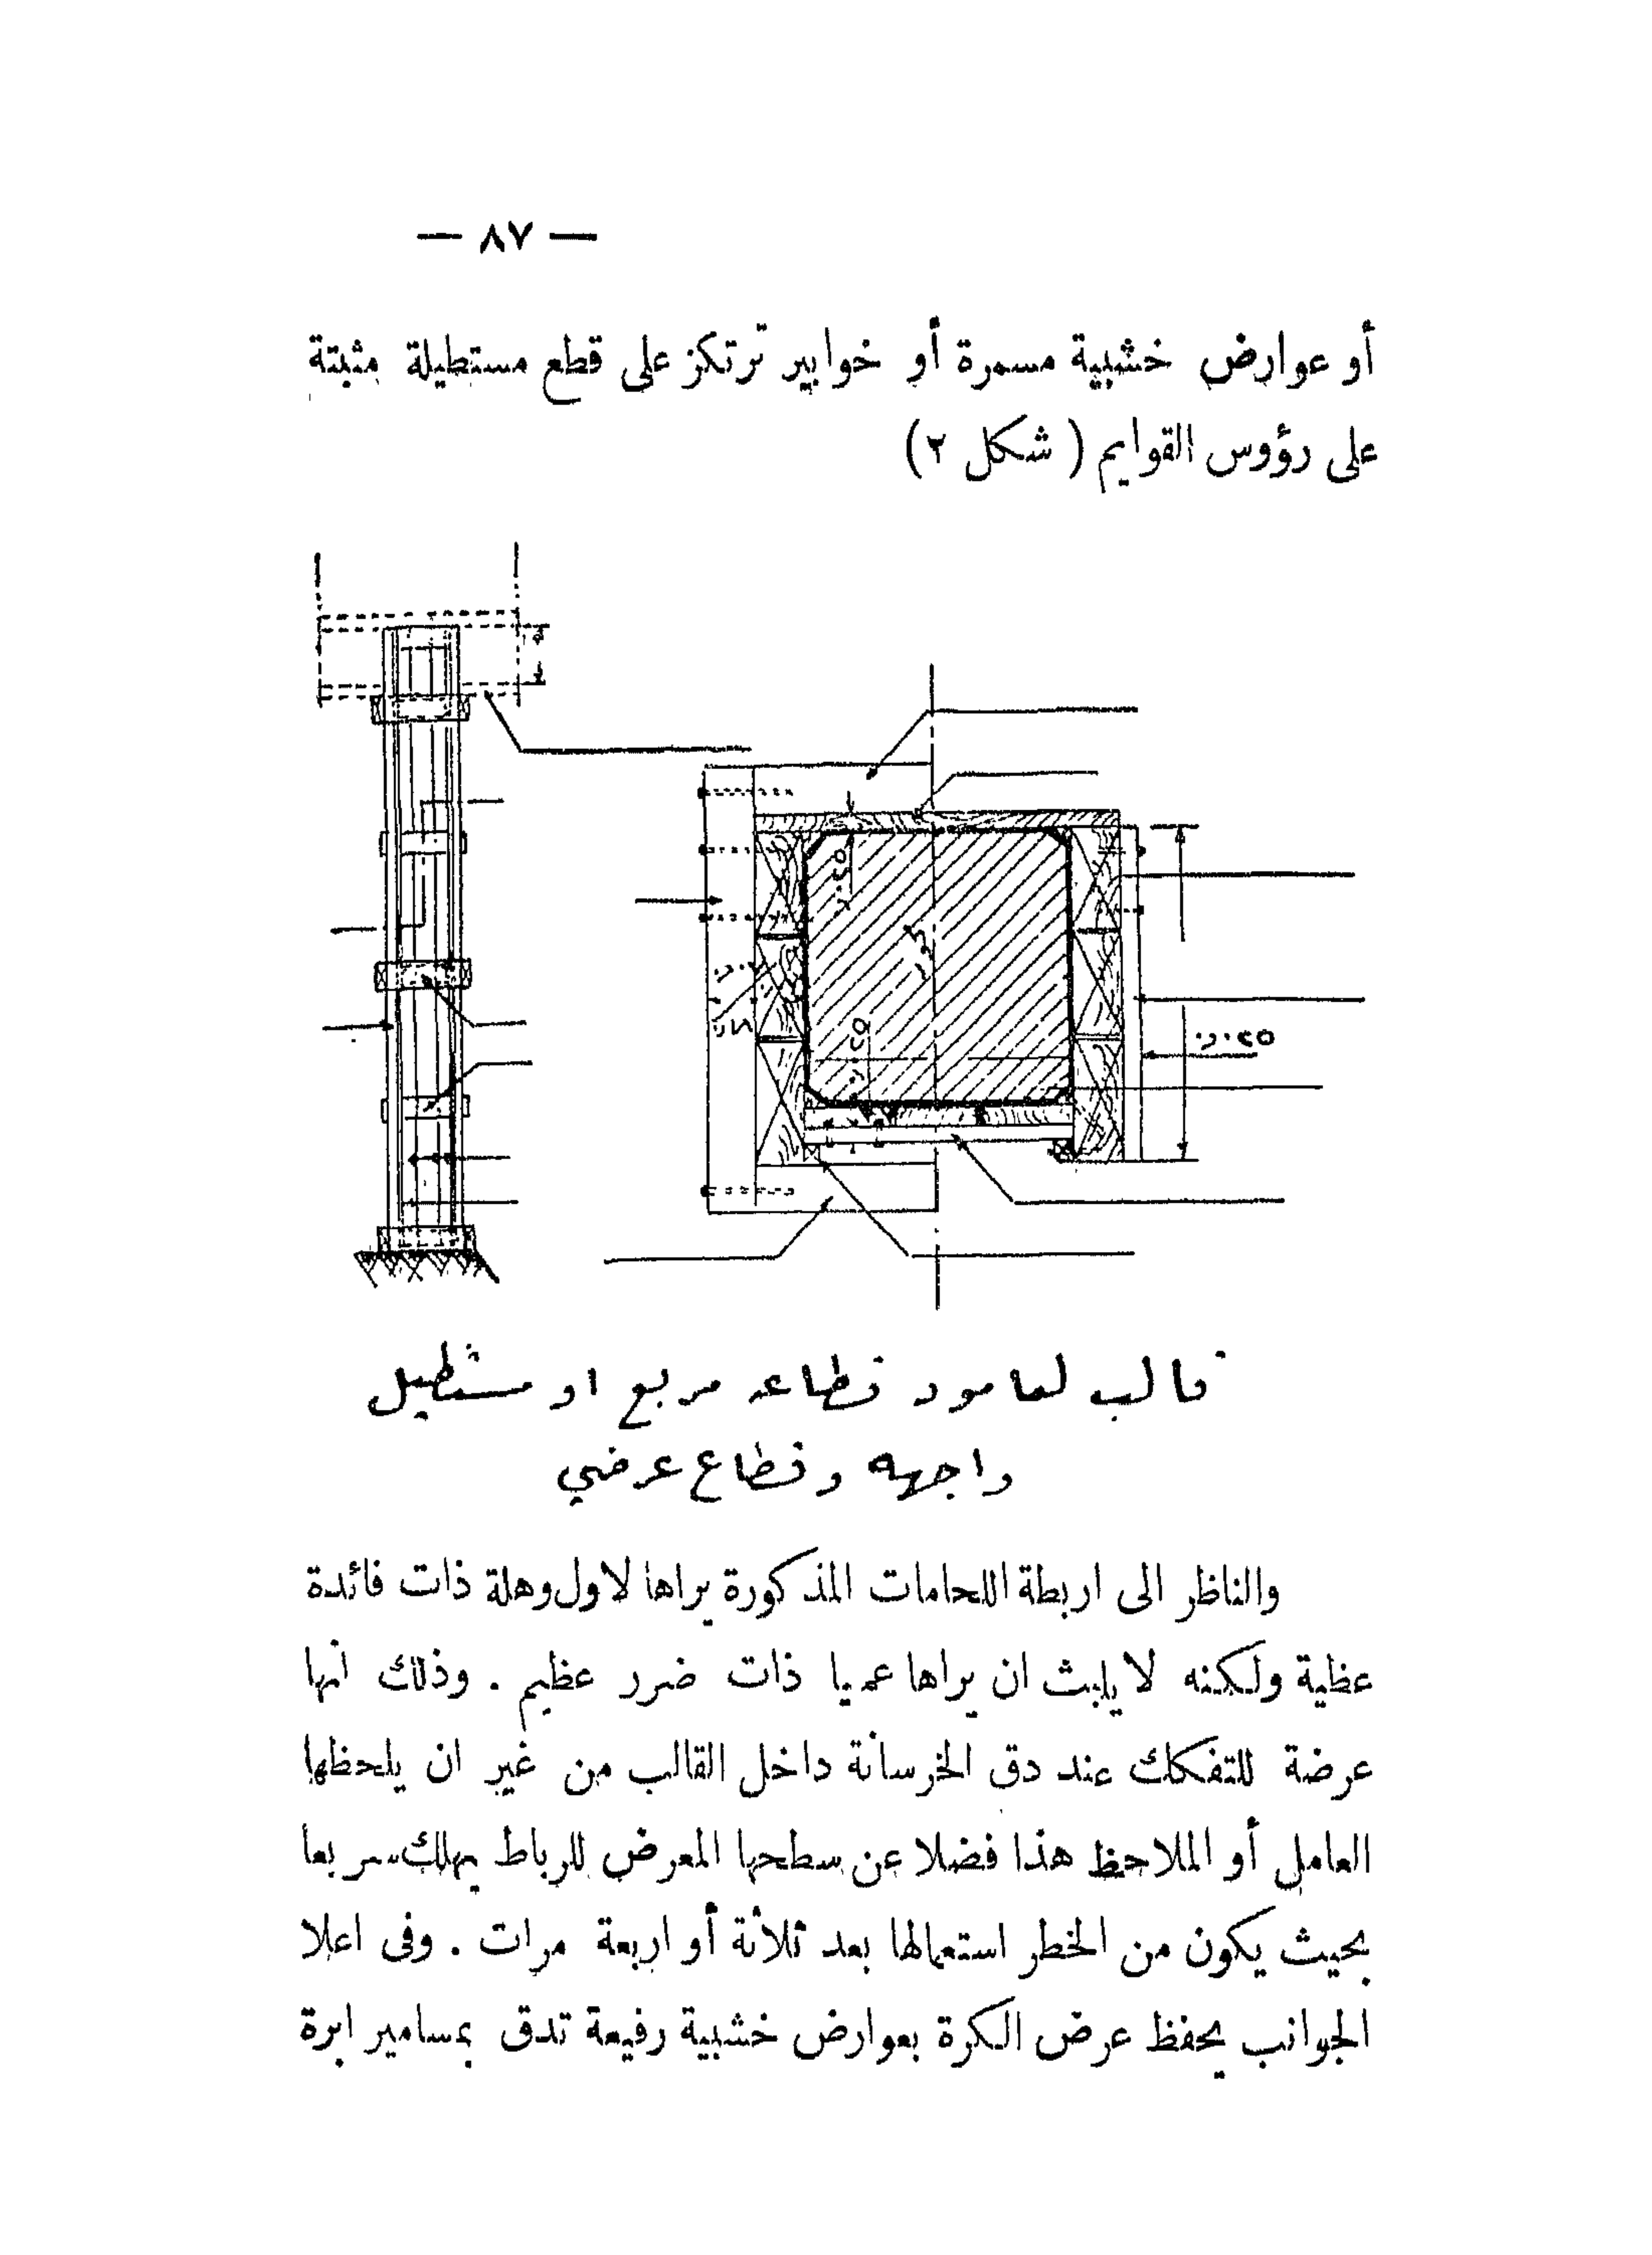 — ٨٧ —
أو عوارض خشبية مسمرة أو خوابير ترتكز على قطع مستطيلة مثبتة
على رؤوس القوايم ( شكل ٢ )
قالب لعامود قطاعه مربع او مستطيل
واجهه وقطاع عرضي
والناظر الى اربطة اللحامات المذكورة يراها لاول وهلة ذات فائدة
عظية ولكنه لا يلبث ان يراها عمليا ذات ضرر عظيم . وذلك انها
عرضة للتفكك عند دق الخرسانة داخل القالب من غير ان يلحظها
العامل أو الملاحظ هذا فضلا عن سطحها المعرض للرباط يهلك سريعا
بحيث يكون من الخطر استعمالها بعد ثلاثة أو اربعة مرات . وفى اعلا
الجوانب يحفظ عرض الكرة بعوارض خشبية رفيعة تدق بمسامير ابرة